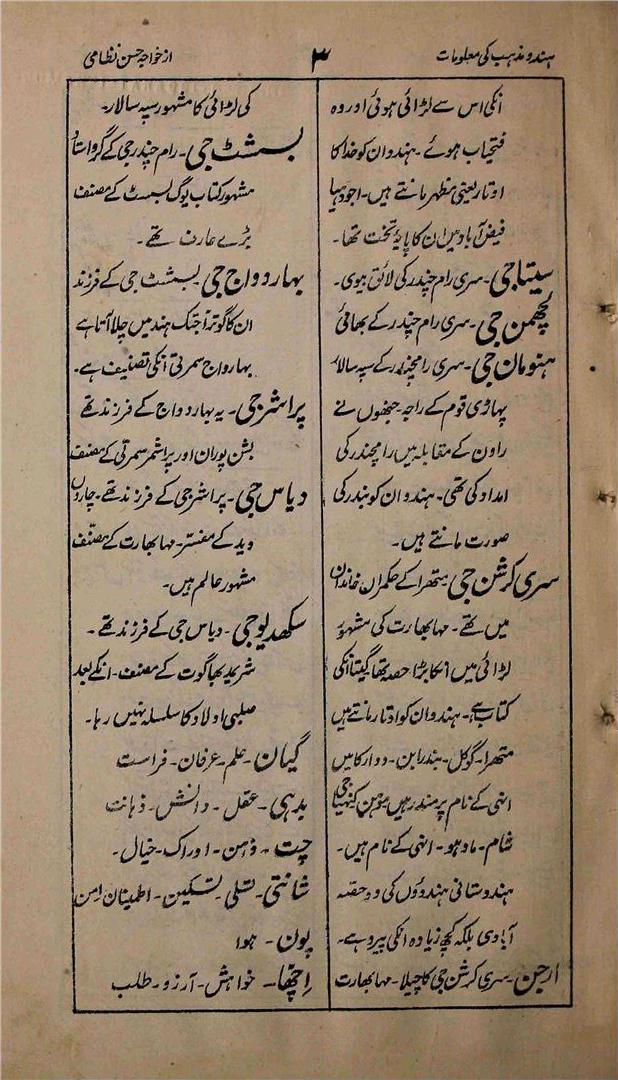 ہندو مذہب کی معلومات
۳
از خواجہ حسن نظامی
انکی اس سے لڑائی ہوئی اور وہ
فتحیاب ہوئے۔ ہندو ان کو خدا کا
اوتار یعنی مظہر مانتے ہیں۔ اجودہیا
فیض آباد میں ان کا پایۂ تخت تھا۔
سیتا جی۔ سری رام چندر کی لائق بیوی۔
لچھمن جی۔ سری رام چندر کے بھائی
ہنومان جی۔ سری رامچندر کے سپہ سالار
پہاڑی قوم کے راجہ۔ جنھوں نے
راون کے مقابلہ میں رامچندر کی
امداد کی تھی۔ ہندو ان کو بندر کی
صورت مانتے ہیں۔
سری کرشن جی متھرا کے حکمراں خاندان
میں تھے۔ مہابھارت کی مشہور
لڑائی میں انکا بڑا حصہ تھا گیتا انکی
کتاب ہے۔ ہندو ان کو اوتار مانتے ہیں
متھرا۔ گوکل۔ بندرابن۔ دوارکا میں
انہی کے نام پر مندر ہیں موہن کنہیا جی
شام۔ مادہو۔ انہی کے نام ہیں۔
ہندوستانی ہندوؤں کی دو حصہ
آبادی بلکہ کچھ زیادہ انکی پیرو ہے۔
ارجن۔ سری کرشن جی کا چیلا۔ مہابھارت
کی لڑائی کا مشہور سپہ سالار۔
بسشٹ جی۔ رام چندر جی کے گرو استاد
مشہور کتاب یوگ بسسٹ کے مصنف
بڑے عارف تھے۔
بہاردواج جی۔ بسشٹ جی کے فرزند
ان کا گوتر آجتک ہند میں چلا آتا ہے
بہارواج سمرتی انکی تصنیف ہے۔
پراشر جی۔ یہ بہاردواج کے فرزند تھے
بشن پوران اور پراشمر سمرتی کے مصنف
دیاس جی۔ پراشر جی کے فرزند تھے۔ چاروں
وید کے مفسّر۔ مہابھارت کے مصنّف
مشہور عالم ہیں۔
سکھدیو جی۔ دیاس جی کے فرزند تھے۔
شریمد بھاگوت کے مصنف۔ انکے بعد
صلبی اولاد کا سلسلہ نہیں رہا۔
گیان۔ علم۔ عرفان۔ فراست
بدہی۔ عقل۔ دانش۔ ذہانت
چت۔ ذہن۔ ادراک۔ خیال۔
شانتی۔ تسلی۔ تسکین۔ اطمینان امن
پون۔ ہوا
اچّھا۔ خواہش۔ آرزو۔ طلب